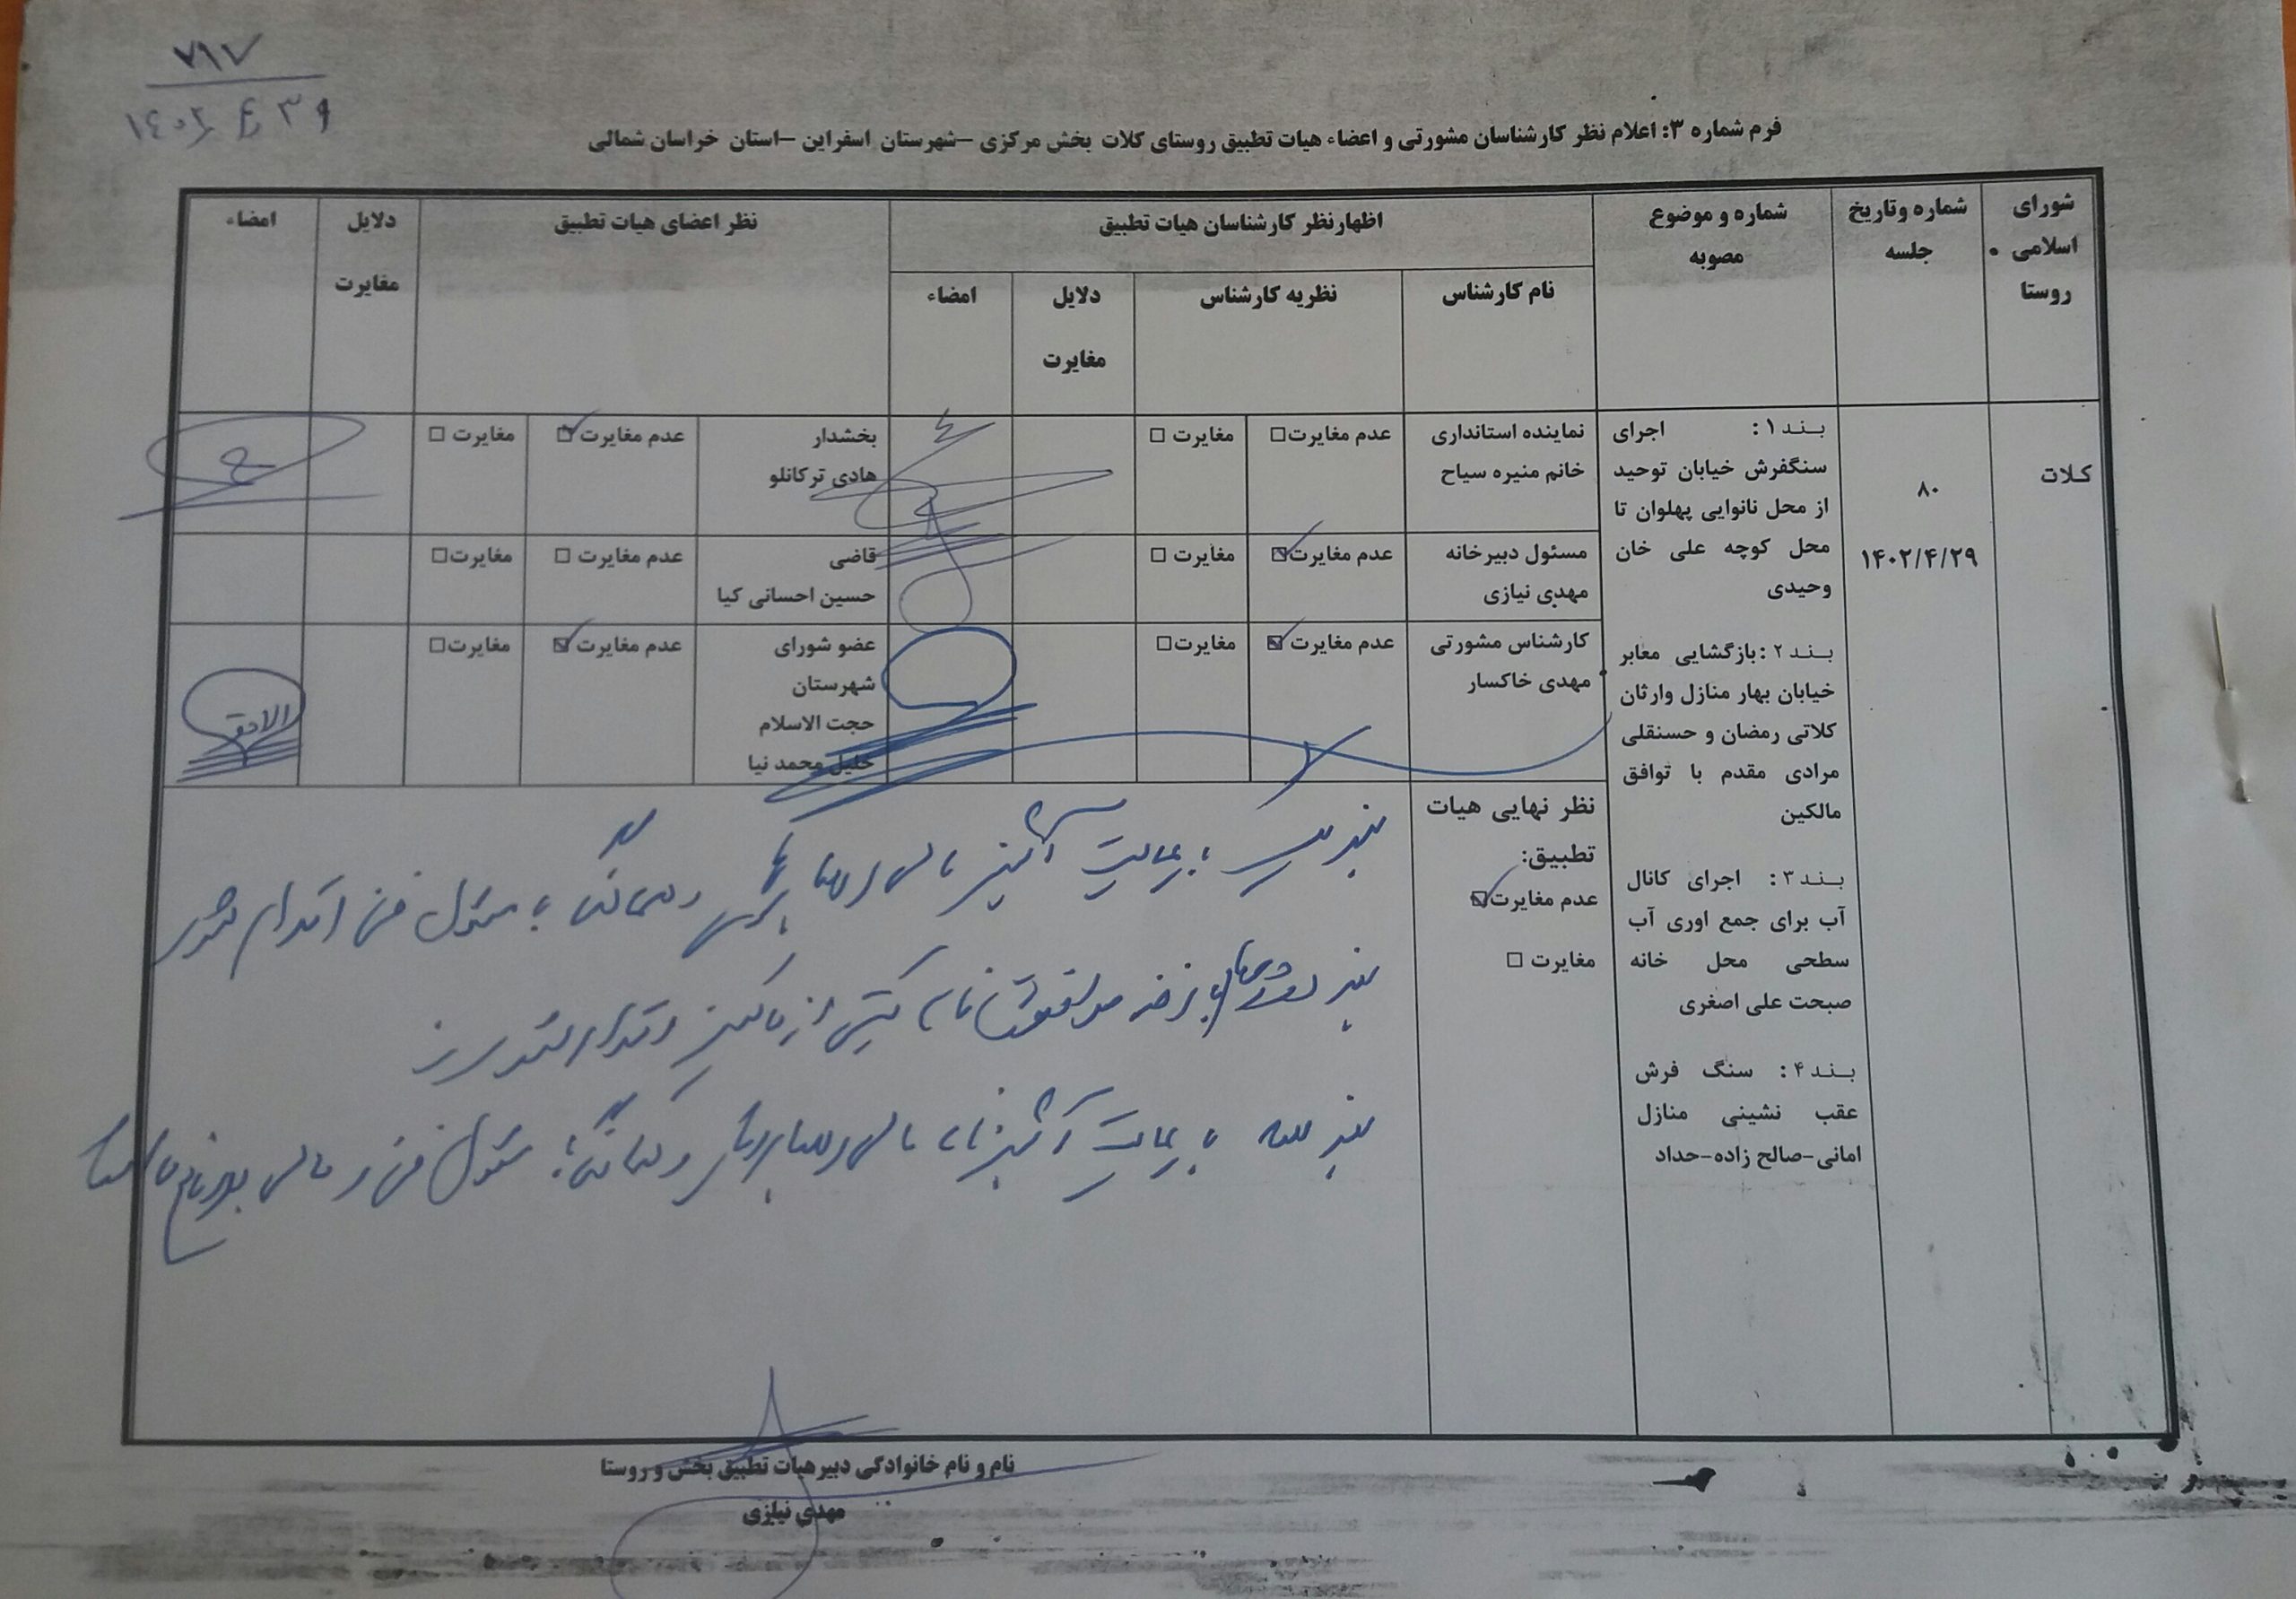 ۷۱۷
فرم شماره ۳: اعلام نظر کارشناسان مشورتی و اعضاء هیات تطبیق روستای کلات بخش مرکزی –شهرستان اسفراین –استان خراسان شمالی
شورای اسلامی روستا
شماره وتاریخ جلسه
شماره و موضوع مصوبه
اظهارنظر کارشناسان هیات تطبیق
نظر اعضای هیات تطبیق
دلایل مغایرت
امضاء
نام کارشناس
نظریه کارشناس
دلایل مغایرت
امضاء
کلات
۸۰
۱۴۰۲/۴/۲۹
بند۱: اجرای
سنگفرش خیابان توحید
از محل نانوایی پهلوان تا
محل کوچه علی خان
وحیدی
بند۲:بازگشایی معابر
خیابان بهار منازل وارثان
کلاتی رمضان و حسنقلی
مرادی مقدم با توافق
مالکین
بند۳: اجرای کانال
آب برای جمع اوری آب
سطحی محل خانه
صبحت علی اصغری
بند۴: سنگ فرش
عقب نشینی منازل
امانی-صالح زاده-حداد
نماینده استانداری
خانم منیره سیاح
عدم مغایرت☐
مغایرت ☐
بخشدار
هادی ترکانلو
عدم مغایرت☑
مغایرت ☐
مسئول دبیرخانه
مهدی نیازی
عدم مغایرت☑
مغایرت ☐
قاضی
حسین احسانی کیا
عدم مغایرت ☐
مغایرت☐
کارشناس مشورتی
مهدی خاکسار
عدم مغایرت ☑
مغایرت☐
عضو شورای
شهرستان
حجت الاسلام
خلیل محمد نیا
عدم مغایرت ☑
مغایرت☐
نظر نهایی هیات
تطبیق:
عدم مغایرت☑
مغایرت ☐
بند یک با رعایت آیین مالی و با مسئول فنی اقدام شود
بند از مالکین اقدام
بند سه با رعایت آیین نامه مالی و مسئول فنی و مالی
نام و نام خانوادگی دبیرهیات تطبیق بخش و روستا
مهدی نیازی